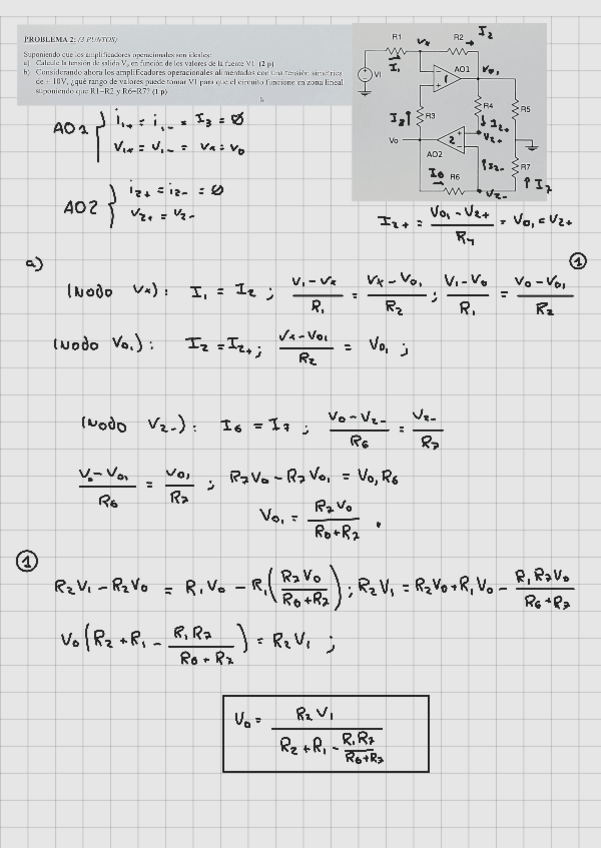 PROBLEMA 2: (3 PUNTOS)
Suponiendo que los amplificadores operacionales son ideales:
a) Calcule la tensión de salida V₀ en función de los valores de la fuente V1 (2 p)
b) Considerando ahora los amplificadores operacionales alimentados con una tensión simétrica
de ± 10V, ¿qué rango de valores puede tomar V1 para que el circuito funcione en zona lineal
suponiendo que R1=R2 y R6=R7? (1 p)
R1 Vx R2 I₂
I₁
V1 AO1 1 V₀₁
I₃ R3 R4 I₂₊ R5
Vo 2 V₂₊
AO2 I₂₋ R7
I₆ R6 V₂₋ I₇
AO1 { i₁₊ = i₁₋ = I₃ = 0
V₁₊ = V₁₋ = Vx = V₀
AO2 { i₂₊ = i₂₋ = 0
V₂₊ = V₂₋
I₂₊ = (V₀₁ - V₂₊)/R₄ = V₀₁ = V₂₊
a) 1
(Nodo Vx): I₁ = I₂ ; (V₁ - Vx)/R₁ = (Vx - V₀₁)/R₂ ; (V₁ - V₀)/R₁ = (V₀ - V₀₁)/R₂
(Nodo V₀₁): I₂ = I₂₊ ; (Vx - V₀₁)/R₂ = V₀₁ ;
(Nodo V₂₋): I₆ = I₇ ; (V₀ - V₂₋)/R₆ = V₂₋/R₇
(V₀ - V₀₁)/R₆ = V₀₁/R₇ ; R₇V₀ - R₇V₀₁ = V₀₁R₆
V₀₁ = R₇V₀/(R₆+R₇) .
1
R₂V₁ - R₂V₀ = R₁V₀ - R₁(R₇V₀/(R₆+R₇)) ; R₂V₁ = R₂V₀ + R₁V₀ - R₁R₇V₀/(R₆+R₇)
V₀(R₂ + R₁ - R₁R₇/(R₆ + R₇)) = R₂V₁ ;
V₀ = R₂V₁/(R₂ + R₁ - R₁R₇/(R₆+R₇))